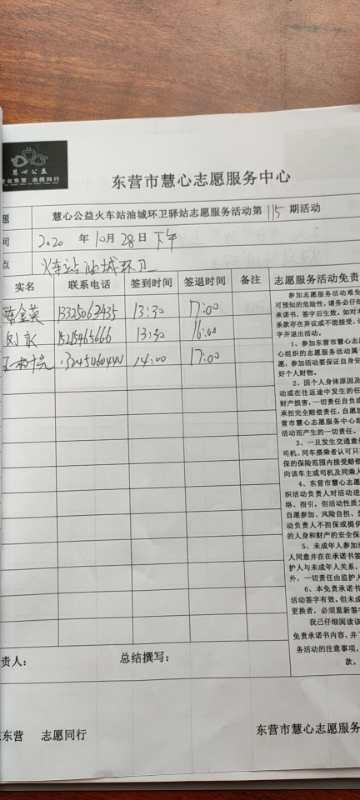 慧心公益
东营市慧心志愿服务中心
题 慧心公益火车站油城环卫驿站志愿服务活动第115期活动
间 2020年10月28日下午
点 火车站油城环卫
实名 联系电话 签到时间 签退时间 备注 志愿服务活动免责
金英 13325062435 13:30 17:00
15215465666 13:30 16:00
14:00 17:00
参加志愿服务活动难免
可预知的危险性，请务必仔细
承诺书，签字后生效。如对本
条款存在异议或不能接受，请
字并退出活动。
1、参加东营市慧心志
心组织的志愿服务活动属于
愿，参加活动要保证自身安
好个人财物。
2、因个人身体原因及
动或在往返途中发生的任
财产损害，一切责任自负或
承担完全赔偿责任，自愿放
营市慧心志愿服务中心
活动而产生的一切责任。
3、一旦发生交通意外
司机、同车搭乘者认可只
保的保险范围内接受赔偿
向该车主或司机及同乘人
4、东营市慧心志愿
织活动负责人对活动进
络、指引，但活动性质
自愿参加、风险自担，
动负责人不担保或提供
的人身和财产的安全保
5、未成年人参加
人同意并在在承诺书签
护人与未成年人关系，
外，一切责任由监护人
6、本免责承诺书
活动签字有效，但未成
更换者，必须重新签
我已仔细阅读该
免责承诺书内容，并
务活动的注意事项，
次。
责人： 总结撰写：
东营 志愿同行 东营市慧心志愿服务